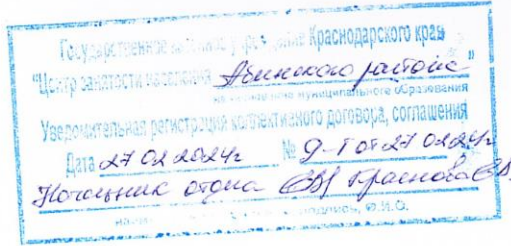 Государственное казенное учреждение Краснодарского края
"Центр занятости населения Абинского района"
наименование муниципального образования
Уведомительная регистрация коллективного договора, соглашения
Дата 27 02 2024г № 9-Т от 27 02 24г
Начальник отдела Краснова
подпись, Ф.И.О.